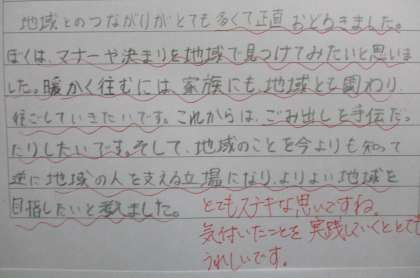 地域とのつながりがとても多くて正直おどろきました。
ぼくは、マナーや決まりを地域で見つけてみたいと思いま
した。暖かく住むには、家族にも、地域とも関わり、
住ごしていきたいです。これからは、ごみ出しを手伝だっ
たりしたいです。そして、地域のことを今よりも知って
逆に地域の人を支える立場になり、よりよい地域を
目指したいと考えました。
とてもステキな思いですね。
気付いたことを実践していくととても
うれしいです。